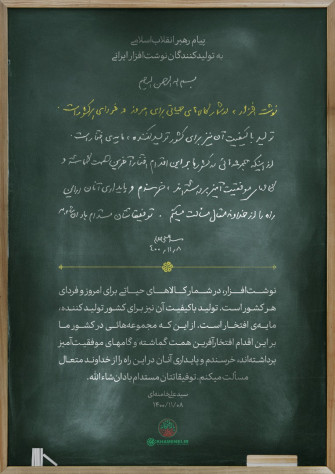 پیام رهبر انقلاب اسلامی
به تولیدکنندگان نوشت‌افزار ایرانی
بسم الله الرحمن الرحیم
نوشت افزار، در شمار کالاهای حیاتی برای امروز و فردای هر کشور است.
تولید باکیفیت آن نیز برای کشور تولیدکننده، مایه‌ی افتخار است.
از اینکه مجموعه‌هائی در کشور ما بر این اقدام افتخارآفرین همت گماشته و
گامهای موفقیت‌آمیز برداشته‌اند، خرسندم و پایداری آنان در این
راه را از خداوند متعال مسألت میکنم. توفیقاتتان مستدام باد ان‌شاءالله.
نوشت‌افزار، در شمار کالاهای حیاتی برای امروز و فردای
هر کشور است. تولید باکیفیت آن نیز برای کشور تولیدکننده،
مایه‌ی افتخار است. از این که مجموعه‌هائی در کشور ما
بر این اقدام افتخارآفرین همت گماشته و گامهای موفقیت‌آمیز
برداشته‌اند، خرسندم و پایداری آنان در این راه را از خداوند متعال
مسألت میکنم. توفیقاتتان مستدام بادان‌شاءالله.
سیدعلی‌خامنه‌ای
۱۴۰۰/۱۱/۰۸